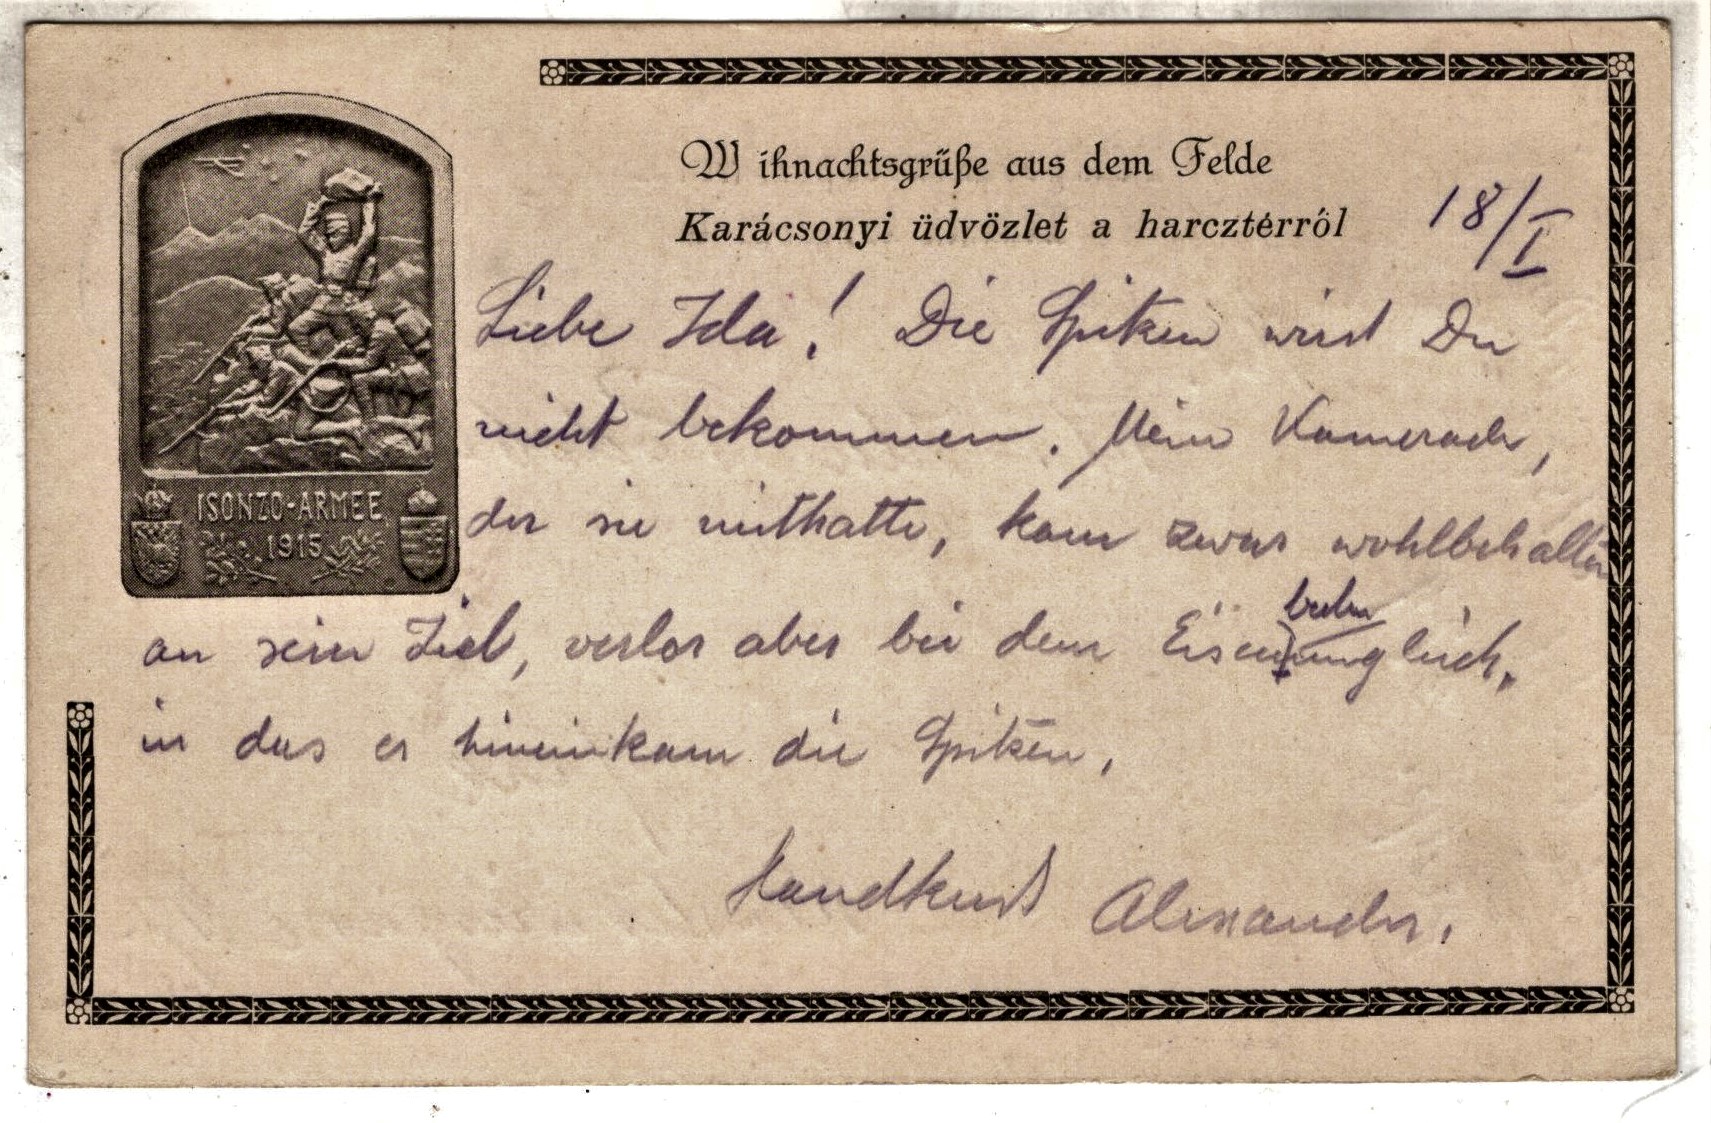 Wihnachtsgrüße aus dem Felde
Karácsonyi üdvözlet a harcztérről
18/I
Liebe Ida! Die Spitzen wirst Du
nicht bekommen. Mein Kamerade,
der sie mithatte, kam zwar wohlbehalten
an sein Ziel, verlor aber bei dem Eisenbahnunglück,
in das er hineinkam die Spitzen.
Handkuß Alexander.
ISONZO-ARMEE
1915